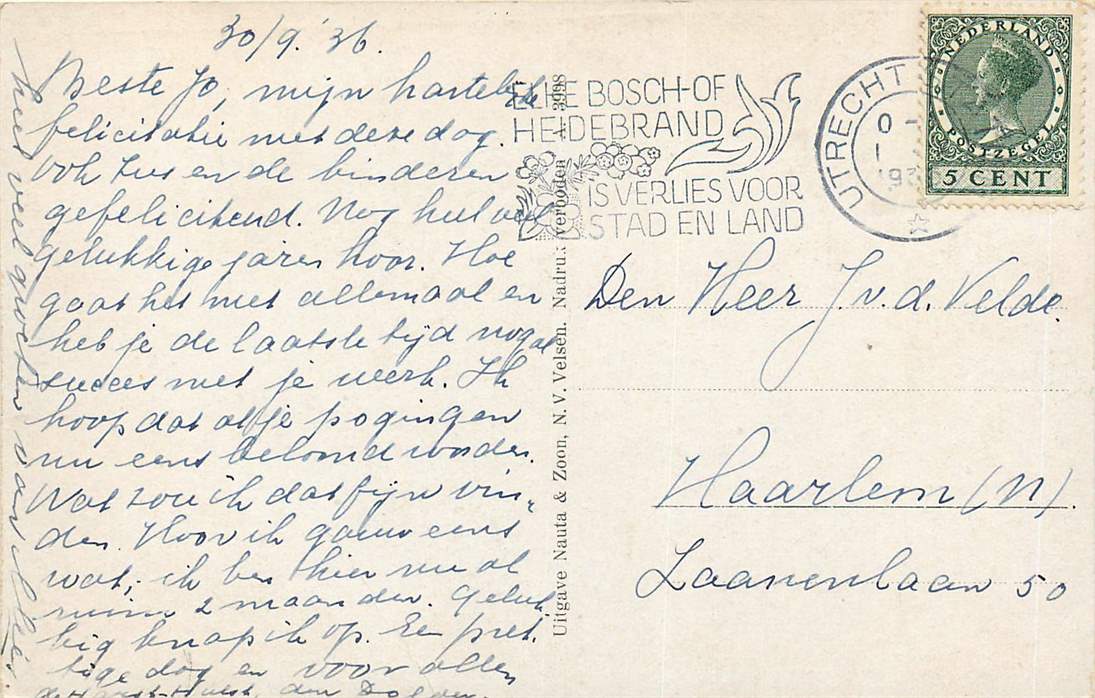 30/9. '36.
Beste Jo, mijn hartelijke
felicitatie met deze dag.
ook Jus en de kinderen
gefeliciteerd. Nog heel veel
gelukkige jaren hoor. Hoe
gaat het met allemaal en
heb je de laatste tijd nogal
succes met je werk. Ik
hoop dat al je pogingen
nu eens beloond worden.
Wat zou ik dat fijn vin-
den. Hoor ik gauw eens
wat, ik ben hier nu al
ruim 2 maanden. Geluk-
kig knap ik op. Een pret-
tige dag en voor allen
heel veel groeten van
den Dolder.
Uitgave Nauta & Zoon, N. V. Velsen. Nadruk verboden 3998
ELKE BOSCH-OF
HEIDEBRAND
IS VERLIES VOOR
STAD EN LAND
UTRECHT
NEDERLAND
POSTZEGEL
5 CENT
Den Heer J. v. d. Velde.
Haarlem (N).
Laanenlaan 50